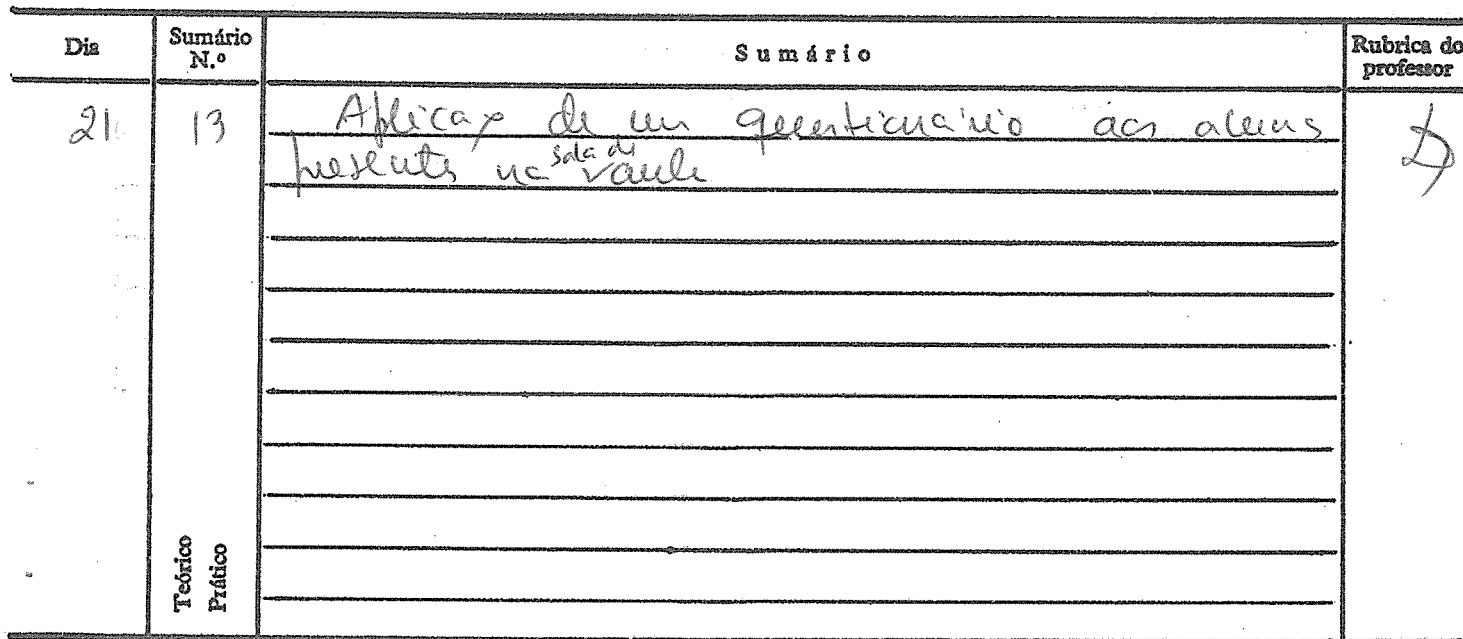 Dia
Sumário N.º
Sumário
Rubrica do professor
21
13
Aplicação de um questionário aos alunos
presentes na sala de aula
Teórico
Prático